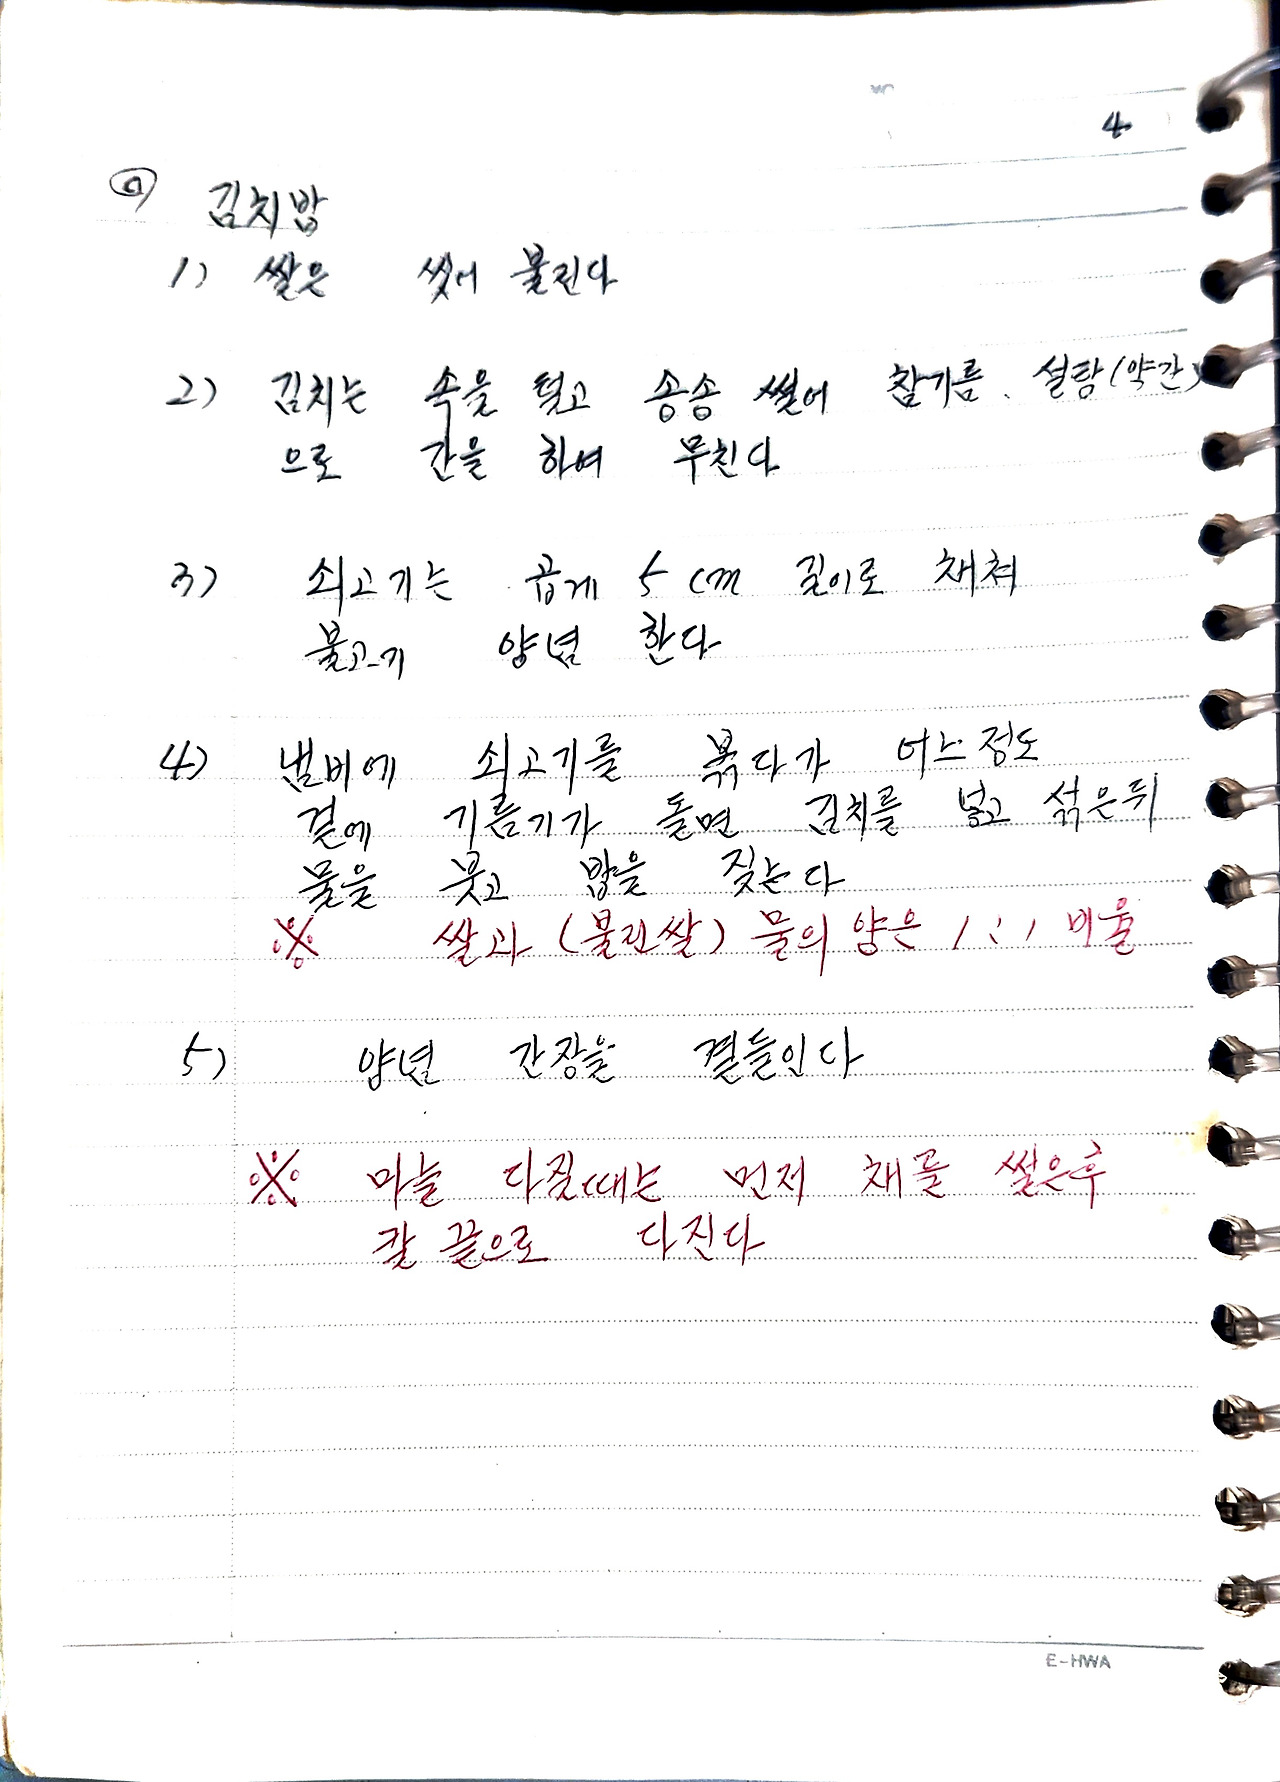 4
김치밥
1) 쌀은 씻어 불린다
2) 김치는 속을 털고 송송 썰어 참기름, 설탕(약간)
으로 간을 하여 무친다
3) 쇠고기는 곱게 5cm 길이로 채쳐
불고기 양념 한다
4) 냄비에 쇠고기를 볶다가 어느정도
겉에 기름기가 돌면 김치를 넣고 섞은뒤
물을 붓고 밥을 짖는다
※ 쌀과 (불린쌀) 물의 양은 1:1 비율
5) 양념 간장을 곁들인다
※ 마늘 다질때는 먼저 채를 썰은후
칼 끝으로 다진다
E-HWA